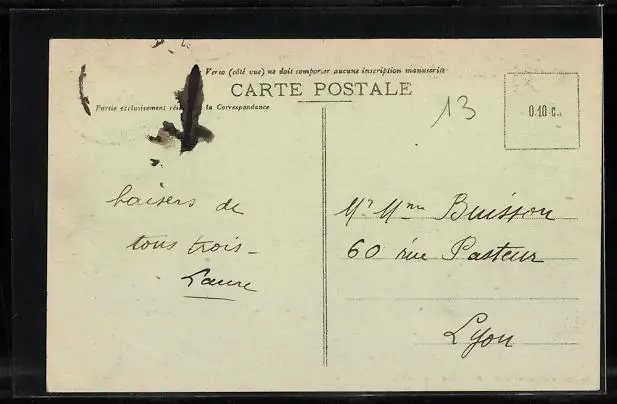 Verso (côté vue) ne doit comporter aucune inscription manuscrite
CARTE POSTALE
Partie exclusivement à la Correspondance
13
0.10 c.
baisers de
tous trois -
Laure
Mr Mme Buisson
60 rue Pasteur
Lyon